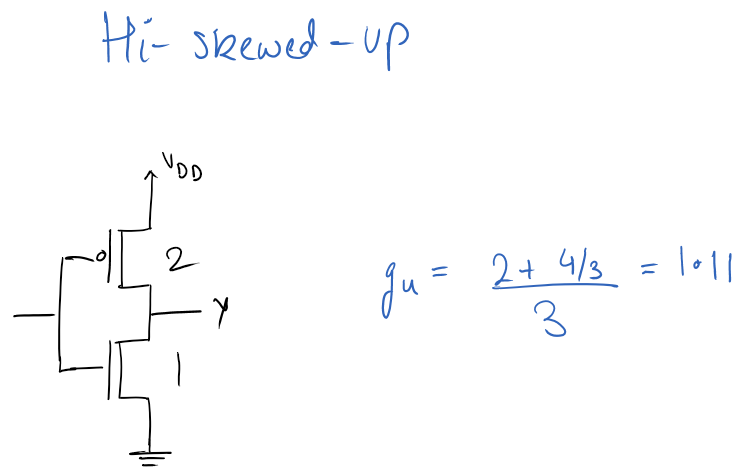 Hi-skewed-up
VDD
2
gu = 2+ 4/3 / 3 = 1.11
Y
1